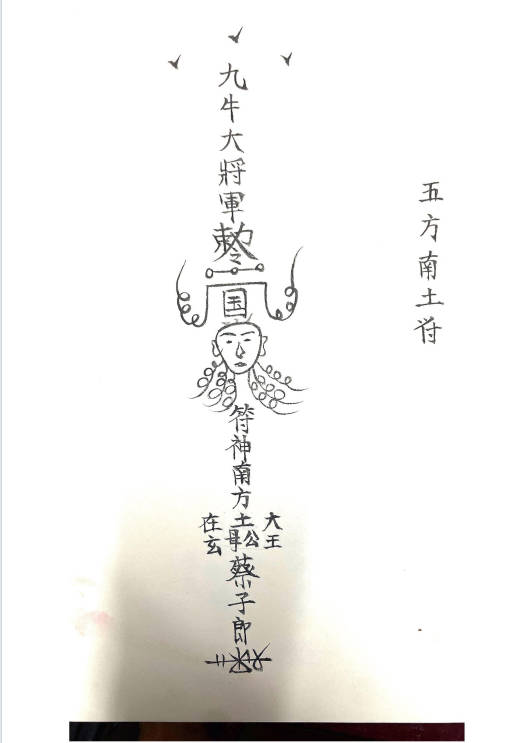 五方南土符
九牛大將軍
敕令
国
符神南方土公
大王
母
在玄
蔡子郎